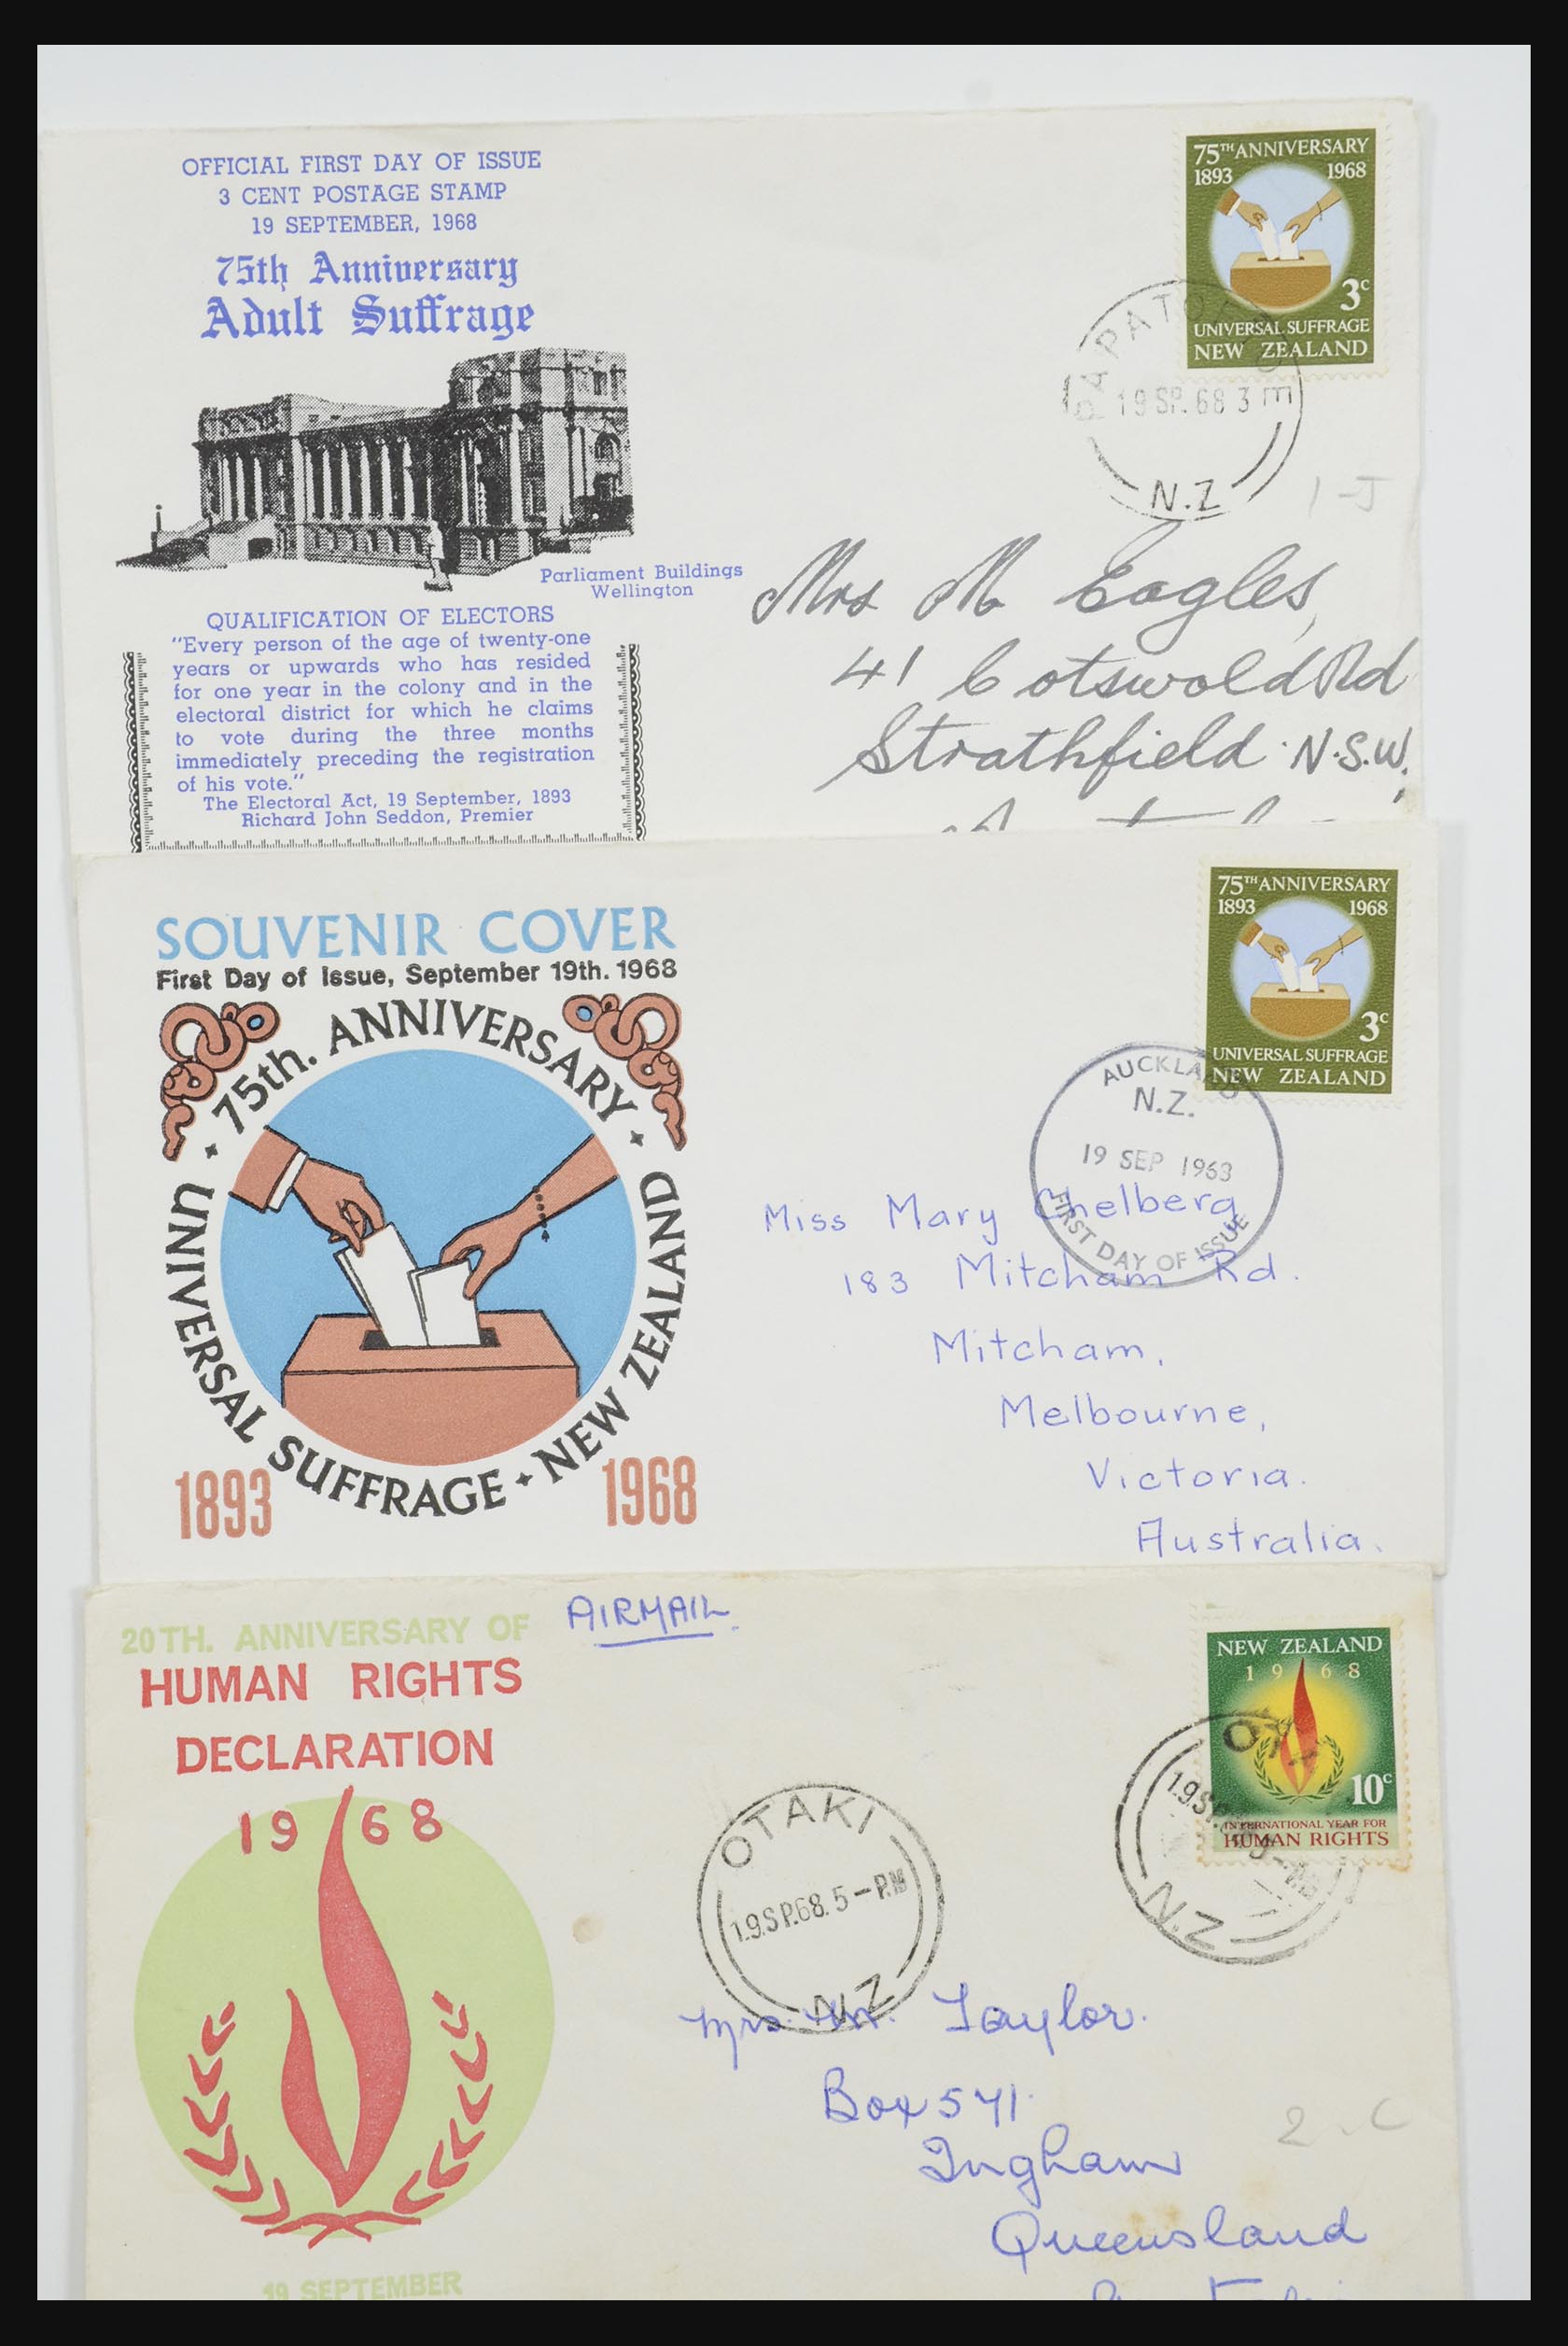 OFFICIAL FIRST DAY OF ISSUE
3 CENT POSTAGE STAMP
19 SEPTEMBER, 1968
75th Anniversary
Adult Suffrage
Parliament Buildings
Wellington
QUALIFICATION OF ELECTORS
"Every person of the age of twenty-one
years or upwards who has resided
for one year in the colony and in the
electoral district for which he claims
to vote during the three months
immediately preceding the registration
of his vote."
The Electoral Act, 19 September, 1893
Richard John Seddon, Premier
75TH ANNIVERSARY
1893 1968
3c
UNIVERSAL SUFFRAGE
NEW ZEALAND
19 SP. 68 3 E
N.Z
1-J
Mrs M Eagles,
41 Cotswold Rd
Strathfield N.S.W.
SOUVENIR COVER
First Day of Issue, September 19th. 1968
75th. ANNIVERSARY
UNIVERSAL SUFFRAGE
NEW ZEALAND
1893 1968
75TH ANNIVERSARY
1893 1968
3c
UNIVERSAL SUFFRAGE
NEW ZEALAND
AUCKLAND
N.Z.
19 SEP 1968
FIRST DAY OF ISSUE
Miss Mary Chelberg
183 Mitcham Rd.
Mitcham,
Melbourne,
Victoria.
Australia.
20TH. ANNIVERSARY OF
HUMAN RIGHTS
DECLARATION
1968
19 SEPTEMBER
AIRMAIL
NEW ZEALAND
1968
10c
INTERNATIONAL YEAR FOR
HUMAN RIGHTS
N.Z
OTAKI
19 SP.68. 5-PM
N.Z
Mrs. M. Taylor.
Box 571.
Ingham
Queensland
2.C